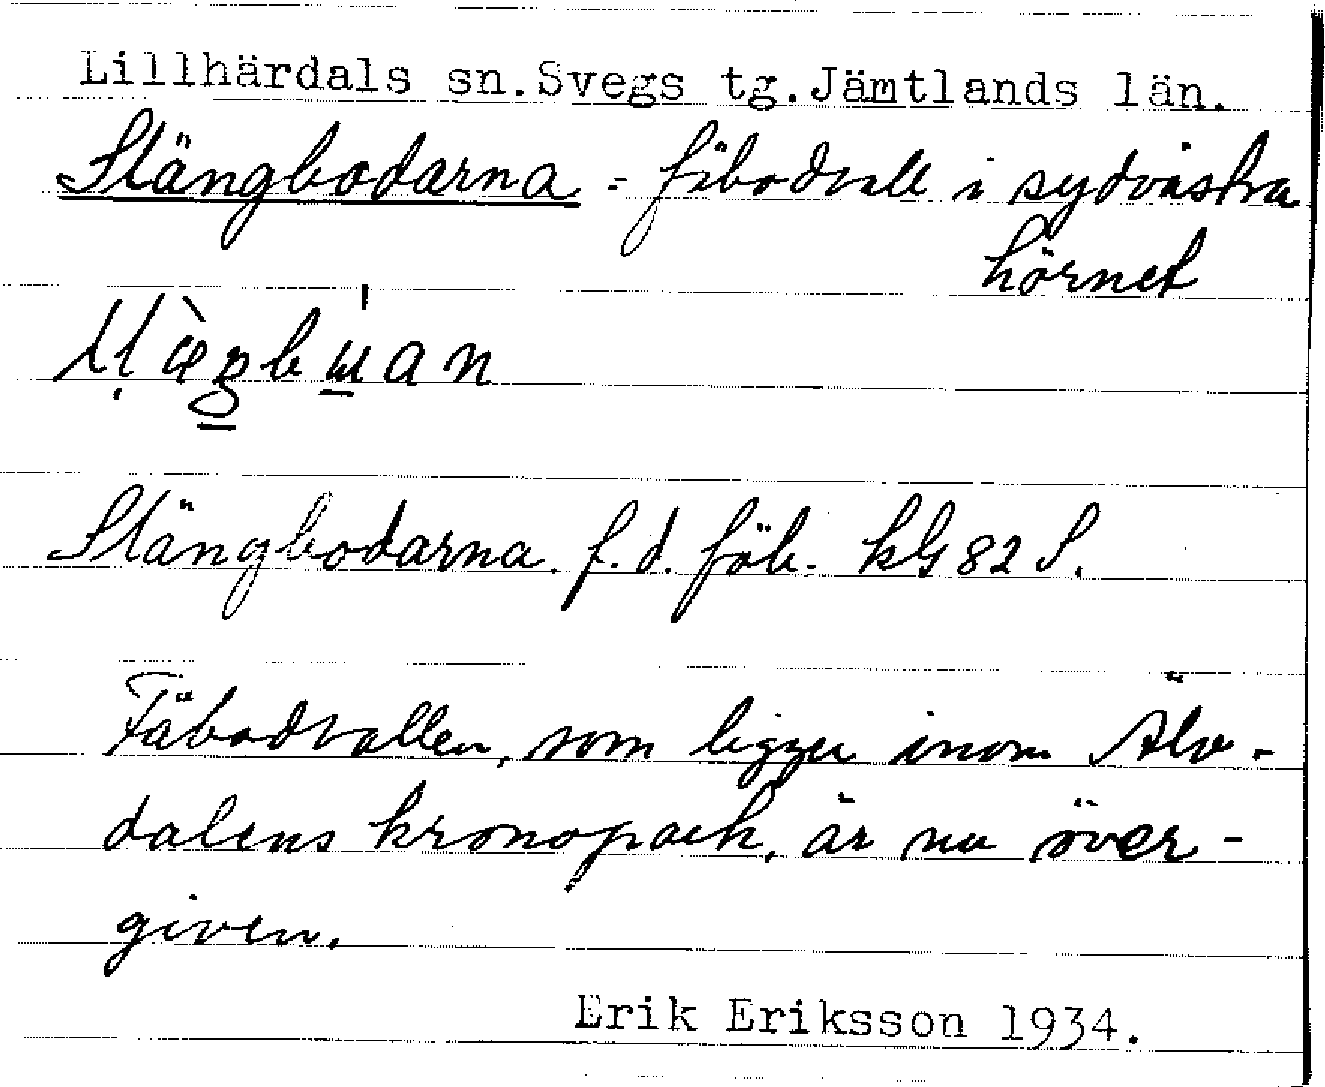 Lillhärdals sn. Svegs tg. Jämtlands län.
Stängbodarna = fäbodvall i sydvästra
hörnet
Stängbodarna. f. d. fäb. kG 82 S.
Fäbodvallen, som ligger inom Älv-
dalens kronopark, är nu över-
given.
Erik Eriksson 1934.